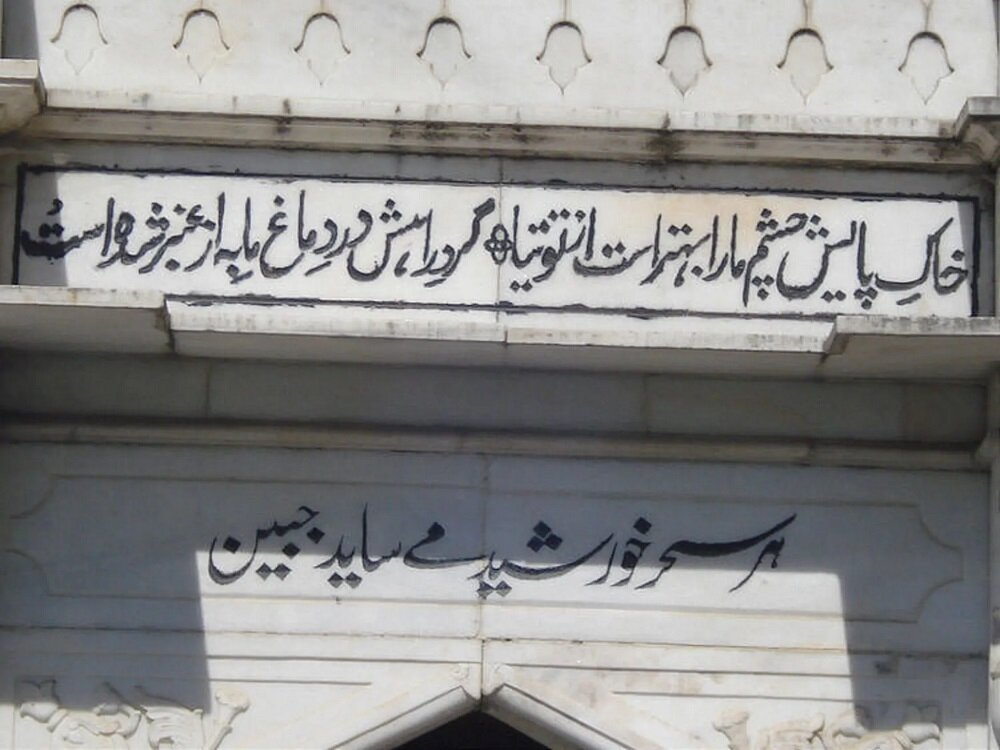 خاکِ پایش چشم مارا بہتر است از توتیا ⊕ گردِ راہش در دِماغِ ما بِہ از عنبر شدہ است
ہر سحر خورشید مے ساید جبین